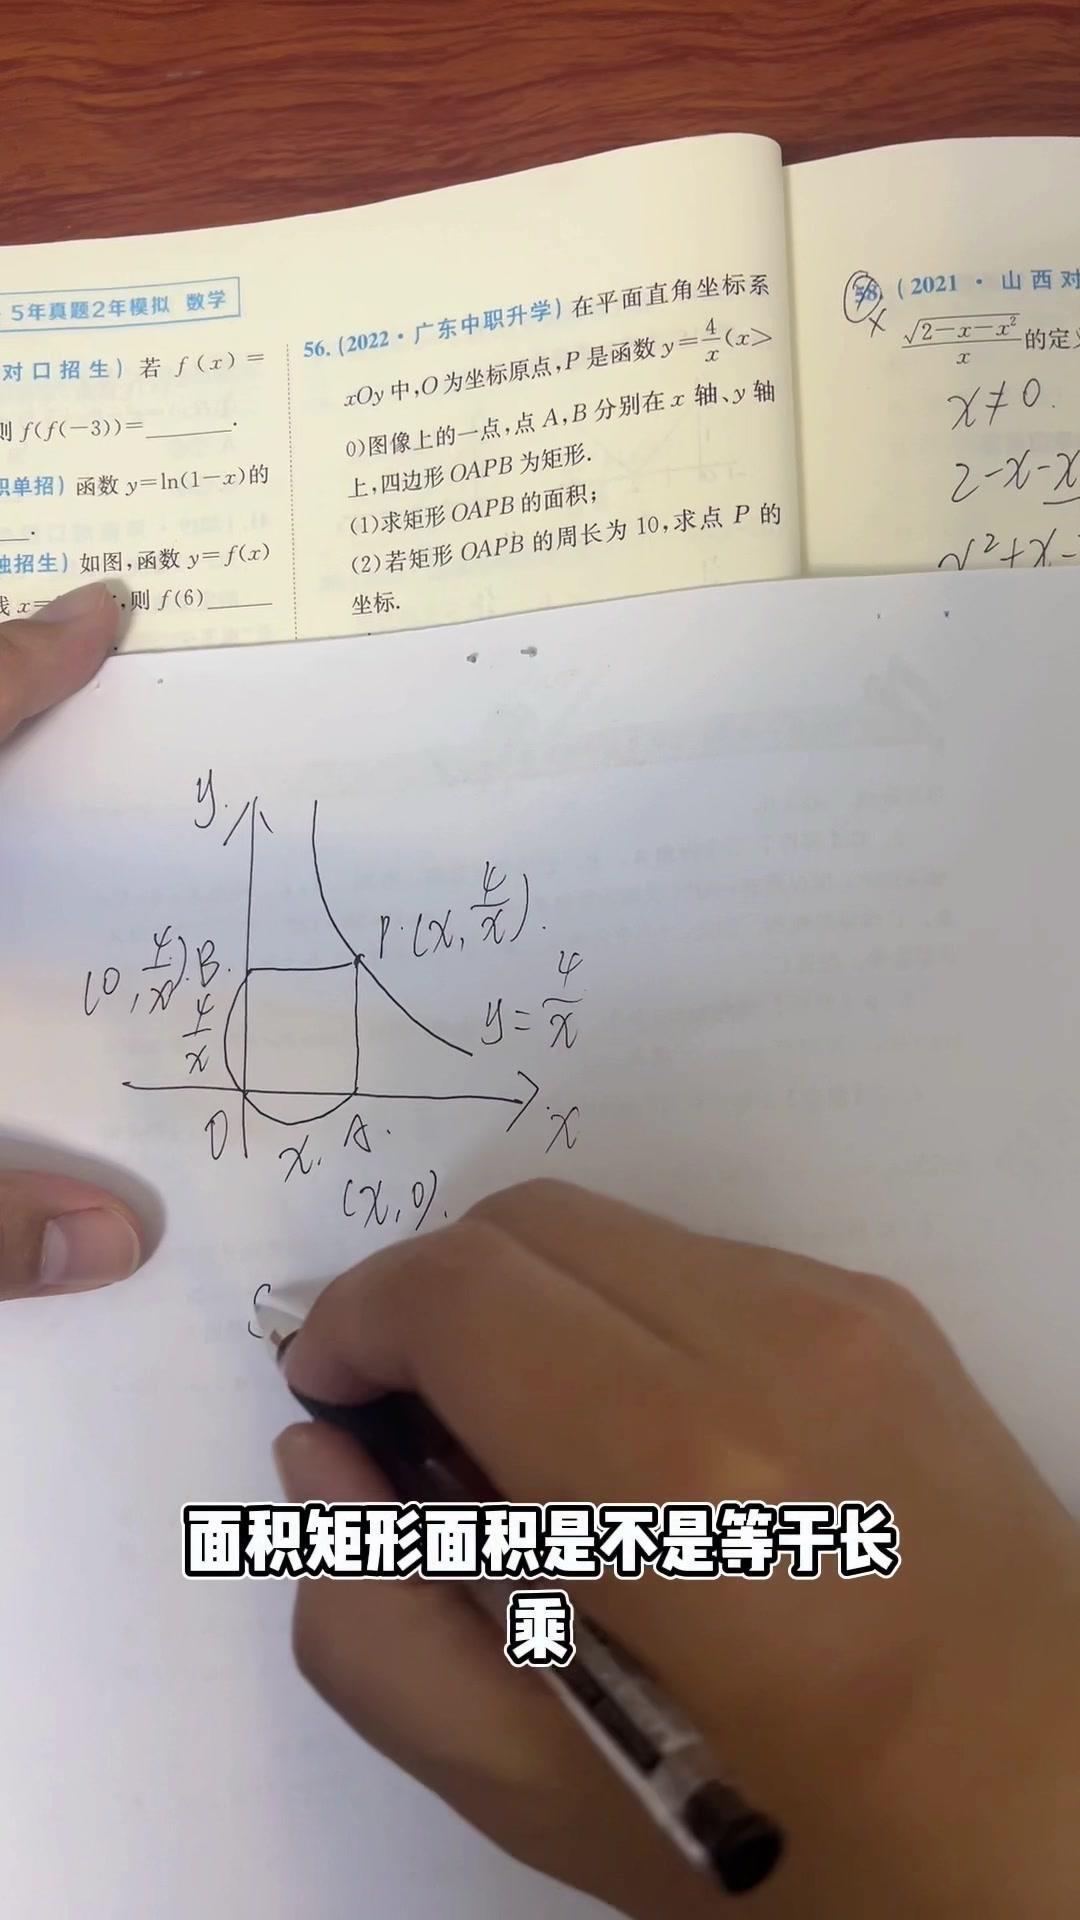 5年真题2年模拟 数学
对口招生) 若 f(x)=
则 f(f(-3))=______.
职单招) 函数 y=ln(1-x)的
独招生) 如图,函数 y=f(x)
,则 f(6)
56.(2022·广东中职升学) 在平面直角坐标系
xOy 中,O 为坐标原点,P 是函数 y=4/x(x>
0)图像上的一点,点 A,B 分别在 x 轴、y 轴
上,四边形 OAPB 为矩形.
(1)求矩形 OAPB 的面积;
(2)若矩形 OAPB 的周长为 10,求点 P 的
坐标.
58.(2021·山西对
×
√(2-x-x²)/x 的定
x≠0.
2-x-x
x²+x-
y.
P.(x, 4/x).
(0, 4/x).B.
4/x
y=4/x
O
x.
A.
x
(x,0).
面积矩形面积是不是等于长
乘